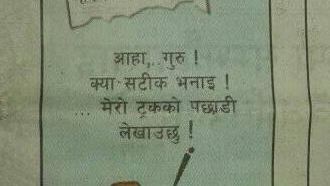 आहा,..गुरु !
क्या सटीक भनाइ !
... मेरो ट्रकको पछाडी
लेखाउछु !